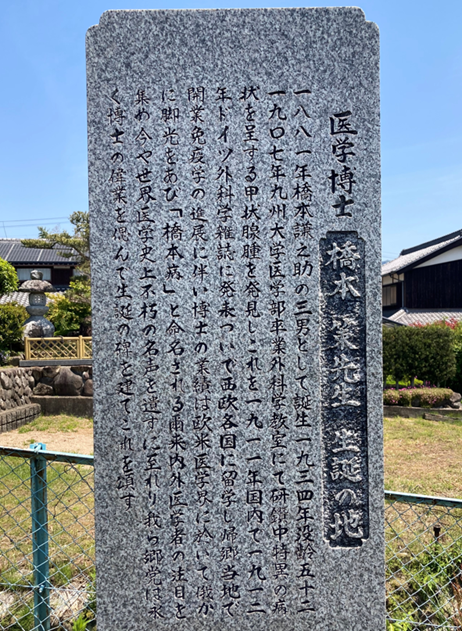 医学博士 橋本策先生 生誕の地
一八八一年橋本謙之助の三男として誕生一九三四年没齢五十二
一九〇七年九州大学医学部卒業外科学教室にて研鑽中特異の病
状を呈する甲状腺腫を発見しこれを一九一一年国内で一九一二
年ドイツ外科学雑誌に発表ついで西欧各国に留学し帰郷当地で
開業免疫学の進展に伴い博士の業績は欧米医学界に於いて俄か
に脚光をあび「橋本病」と命名される爾来内外医学者の注目を
集め今や世界医学史上不朽の名声を遺すに至れり我ら郷党は永
く博士の偉業を偲んで生誕の碑を建てこれを頌す